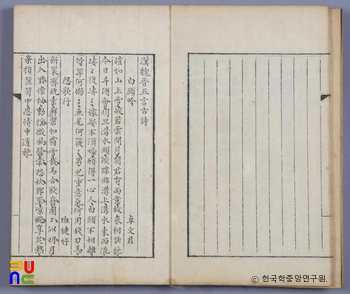 漢魏晉五言古詩
白頭吟 卓文君
皚如山上雪皎若雲間月聞君有兩意故來相訣絶
今日斗酒會明旦溝水頭躞蹀御溝上溝水東西流
淒〻復淒〻嫁娶不須啼願得一心人白頭不相離
竹竿何嫋〻魚尾何簁〻男兒重意氣何用錢刀爲
怨歌行 班婕妤
新裂齊紈素鮮潔如霜雪裁爲合歡扇團〻似明月
出入君懷袖動搖微風發常恐秋節至凉飇奪炎熱
棄捐篋笥中恩情中道絶
한국학중앙연구원